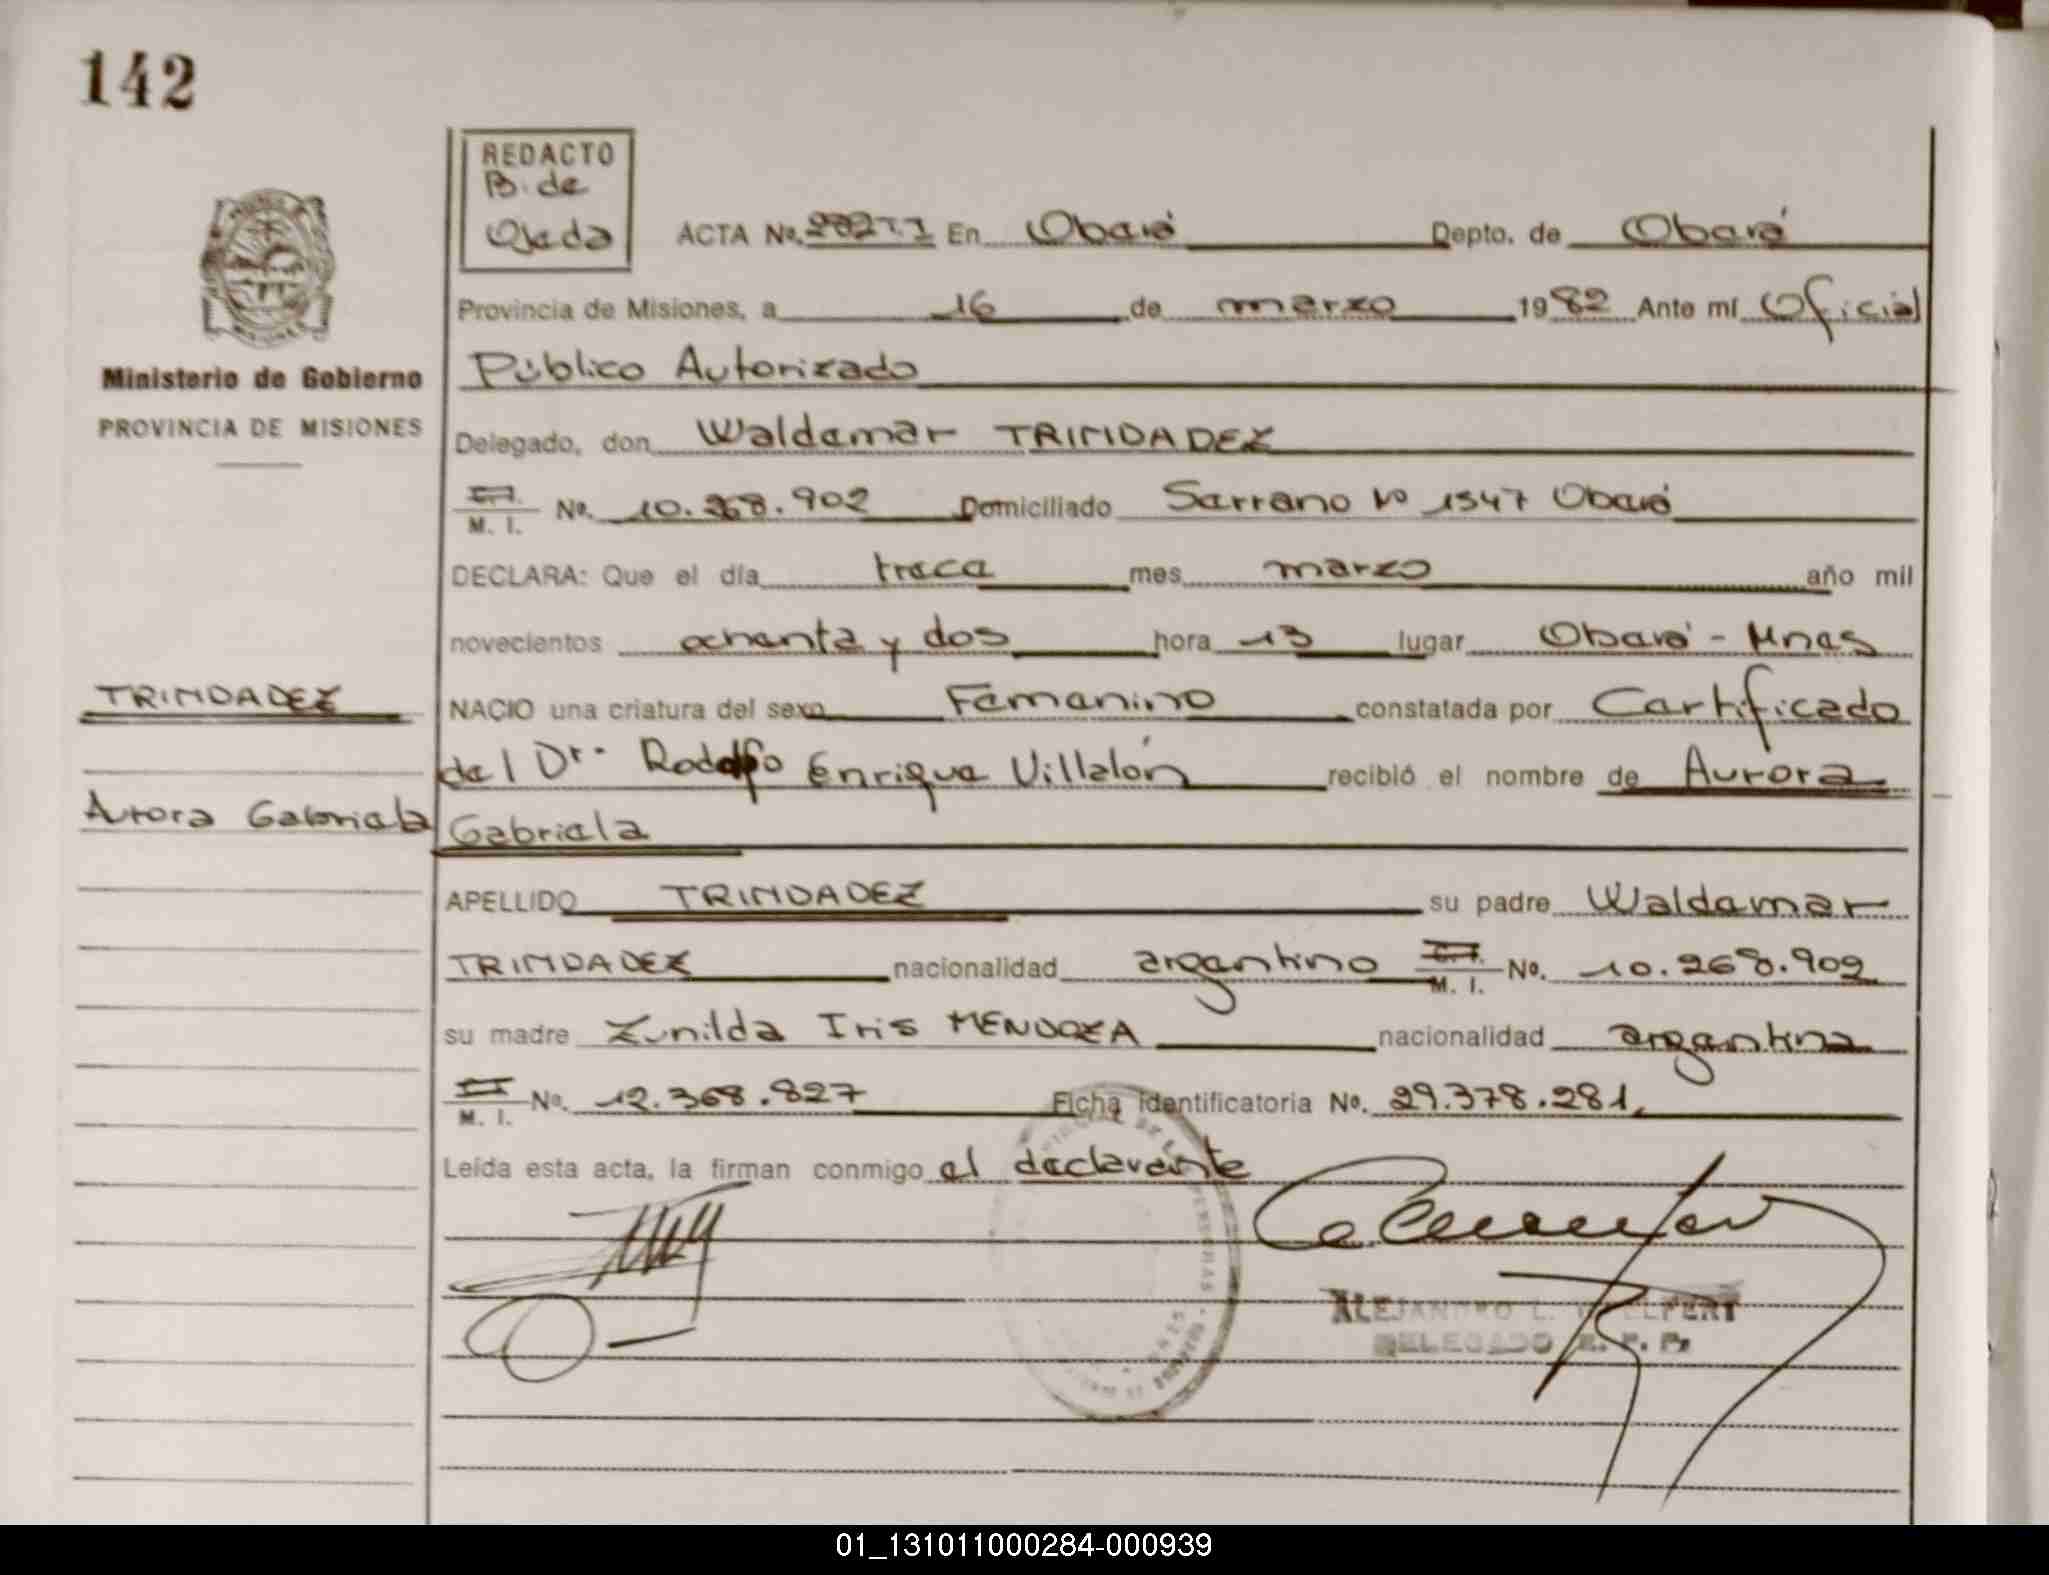 142
REDACTO
B. de
Ojeda
ACTA No. En Oberá Depto. de Oberá
Provincia de Misiones, a 16 de marzo 1982 Ante mí Oficial
Público Autorizado
Ministerio de Gobierno
PROVINCIA DE MISIONES
Delegado, don Waldemar TRINDADEZ
M. I. No. 10.268.902 Domiciliado Serrano No 1547 Oberá
DECLARA: Que el día trece mes marzo año mil
novecientos ochenta y dos hora 13 lugar Oberá - Mnes
TRINDADEZ
NACIO una criatura del sexo Femenino constatada por Certificado
del Dr. Rodolfo Enrique Villalón recibió el nombre de Aurora
Aurora Gabriela
Gabriela
APELLIDO TRINDADEZ su padre Waldemar
TRINDADEZ nacionalidad argentino M. I. No. 10.268.902
su madre Zunilda Iris MENDOZA nacionalidad argentina
M. I. No. 12.368.827 Ficha identificatoria No. 29.378.281.
Leída esta acta, la firman conmigo el declarante
ALEJANDRO L.
DELEGADO R. P. P.
01_131011000284-000939